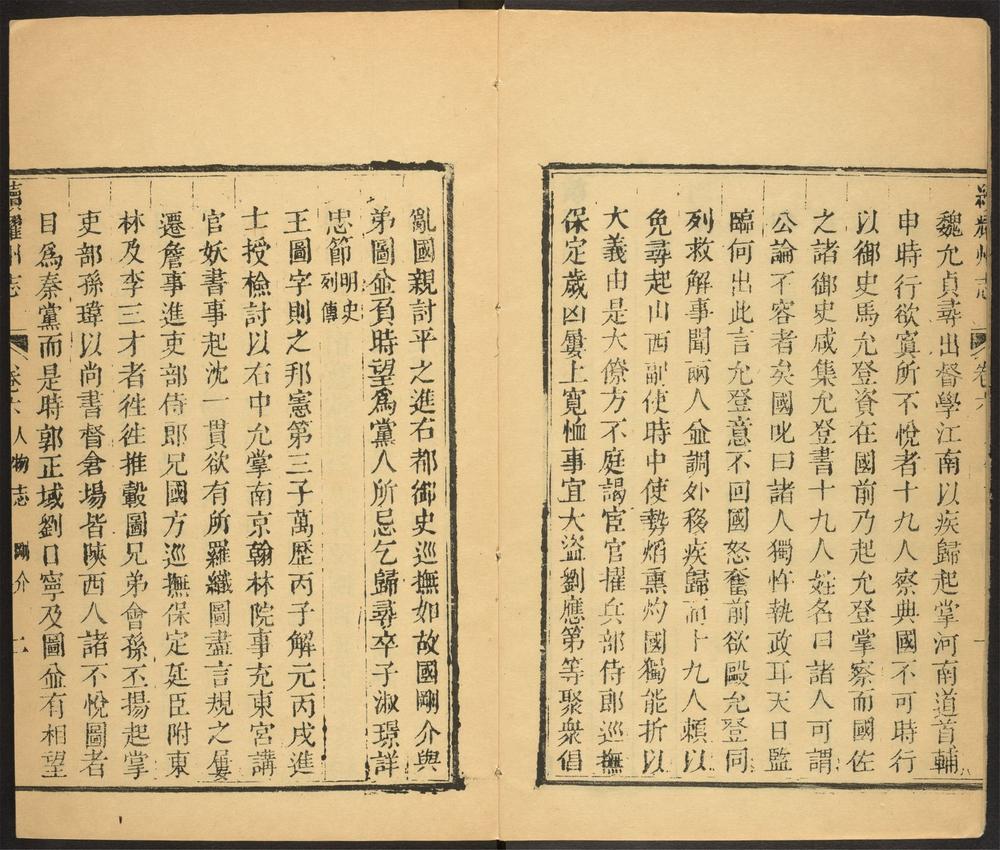 續耀州志
卷六
魏允貞尋出督學江南以疾歸起掌河南道首輔
申時行欲寘所不悅者十九人察典國不可時行
以御史馬允登資在國前乃起允登掌察而國佐
之諸御史咸集允登書十九人姓名曰諸人可謂
公論不容者矣國叱曰諸人獨忤執政耳天日監
臨何出此言允登意不回國怒奮前欲毆允登同
列救解事聞兩人並調外移疾歸而十九人賴以
免尋起山西副使時中使勢焰熏灼國獨能折以
大義由是大僚方不庭謁宦官擢兵部侍郎巡撫
保定歲凶屢上寬恤事宜大盜劉應第等聚衆倡
亂國親討平之進右都御史巡撫如故國剛介與
弟圖並負時望爲黨人所忌乞歸尋卒子淑璟詳
忠節明史列傳
王圖字則之邦憲第三子萬歷丙子解元丙戌進
士授檢討以右中允掌南京翰林院事充東宮講
官妖書事起沈一貫欲有所羅織圖盡言規之屢
遷詹事進吏部侍郎兄國方巡撫保定廷臣附東
林及李三才者徃徃推轂圖兄弟會孫丕揚起掌
吏部孫瑋以尚書督倉場皆陝西人諸不悅圖者
目爲秦黨而是時郭正域劉曰寧及圖並有相望
續耀州志
卷六 人物志 剛介